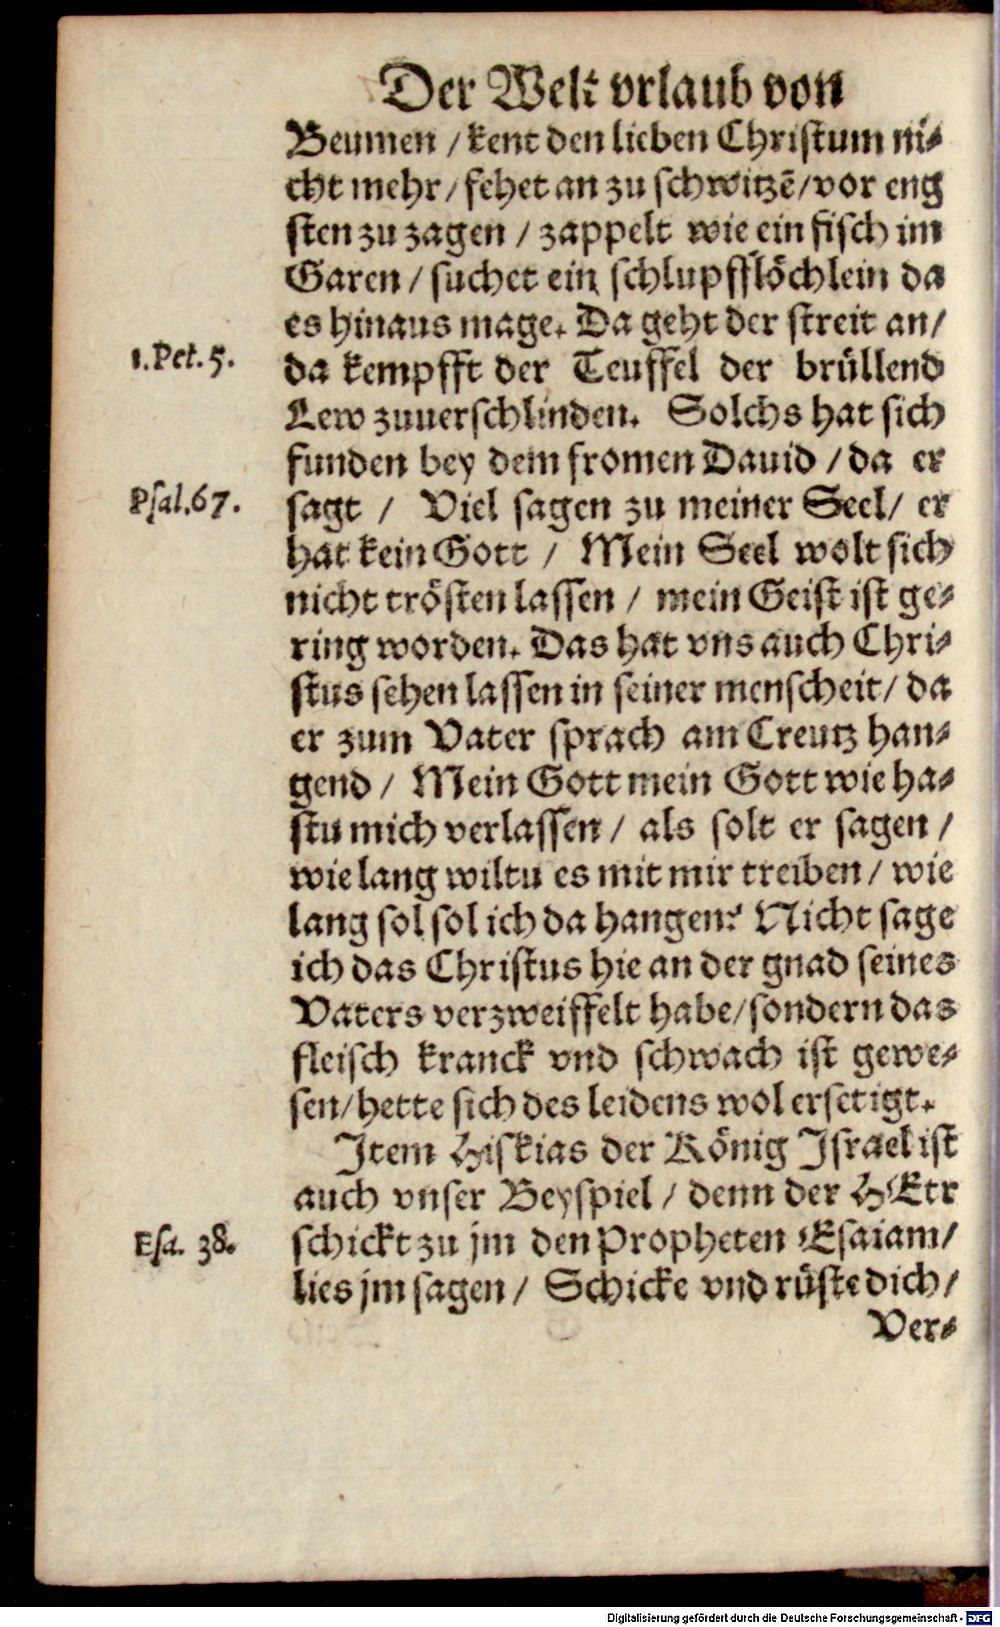 Der Welt vrlaub von
Beumen / kent den lieben Christum ni⸗
cht mehr / fehet an zu schwitzē / vor eng
sten zu zagen / zappelt wie ein fisch im
Garen / suchet ein schlupfflöchlein da
es hinaus mage. Da geht der streit an /
1. Pet. 5.
da kempfft der Teuffel der brüllend
Lew zuuerschlinden. Solchs hat sich
funden bey dem fromen Dauid / da er
Psal. 67.
sagt / Viel sagen zu meiner Seel / er
hat kein Gott / Mein Seel wolt sich
nicht trösten lassen / mein Geist ist ge⸗
ring worden. Das hat vns auch Chri⸗
stus sehen lassen in seiner menscheit / da
er zum Vater sprach am Creutz han⸗
gend / Mein Gott mein Gott wie ha⸗
stu mich verlassen / als solt er sagen /
wie lang wiltu es mit mir treiben / wie
lang sol sol ich da hangen? Nicht sage
ich das Christus hie an der gnad seines
Vaters verzweiffelt habe / sondern das
fleisch kranck vnd schwach ist gewe⸗
sen / hette sich des leidens wol ersetigt.
Item Hiskias der König Israel ist
auch vnser Beyspiel / denn der HErr
Esa. 38.
schickt zu jm den Propheten Esaiam /
lies jm sagen / Schicke vnd rüste dich /
Ver⸗
Digitalisierung gefördert durch die Deutsche Forschungsgemeinschaft - DFG